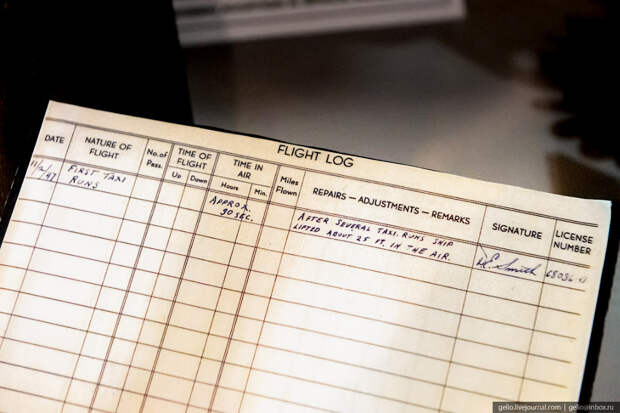 FLIGHT LOG
DATE
NATURE OF
FLIGHT
No. of
Pass.
TIME OF
FLIGHT
Up Down
TIME IN
AIR
Hours Min.
Miles
Flown
REPAIRS — ADJUSTMENTS — REMARKS
SIGNATURE
LICENSE
NUMBER
11/2/47
FIRST TAXI
RUNS
APPROX.
30 SEC.
AFTER SEVERAL TAXI RUNS SHIP
LIFTED ABOUT 25 FT. IN THE AIR.
D.E. Smith
gelio.livejournal.com | gelio@inbox.ru